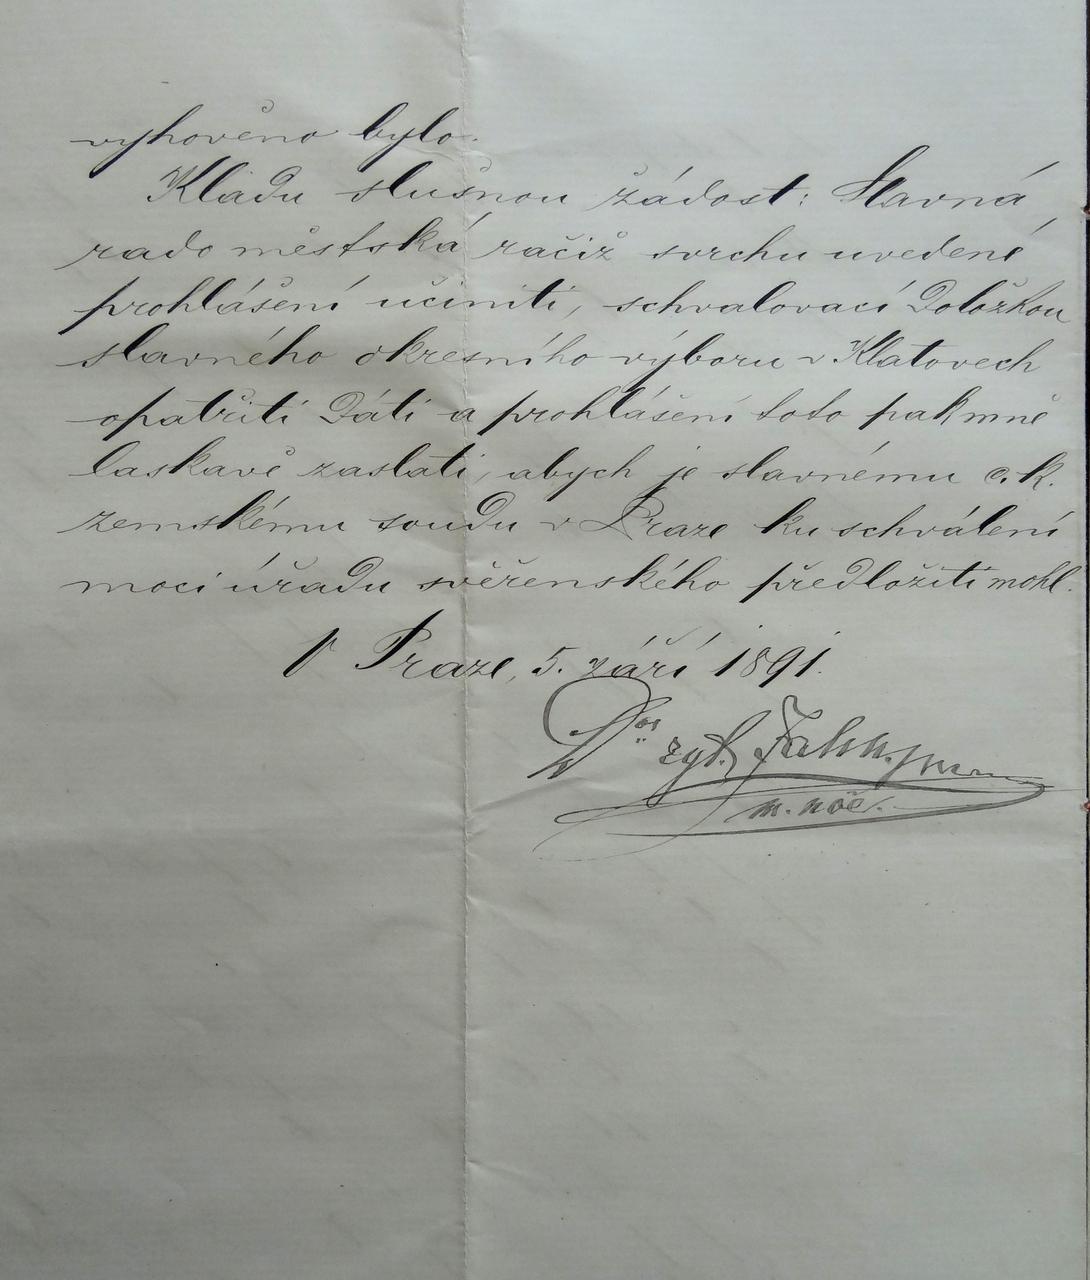 vyhověno bylo.
Kladu slušnou žádost: Slavná
rado městská račiž svrchu uvedené
prohlášení učiniti, schvalovací doložkou
slavného okresního výboru v Klatovech
opatřiti dáti a prohlášení toto pak mně
laskavě zaslati, abych je slavnému c. k.
zemskému soudu v Praze ku schválení
moci úřadu svěřenského předložiti mohl.
V Praze, 5. září 1891.